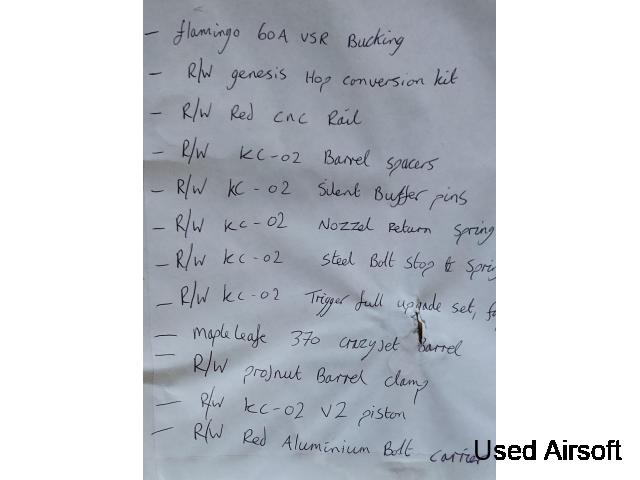 - flamingo 60A VSR Bucking
- R/W genesis Hop conversion kit
- R/W Red cnc Rail
- R/W KC-02 Barrel spacers
- R/W KC-02 Silent Buffer pins
- R/W KC-02 Nozzel Return Spring
- R/W KC-02 Steel Bolt Stop &
- R/W KC-02 Trigger full upgade set,
- Maple leafe 370 crazyjet Barrel
- R/W projnut Barrel clamp
- R/W KC-02 V2 piston
- R/W Red Aluminium Bolt carrier
Used Airsoft